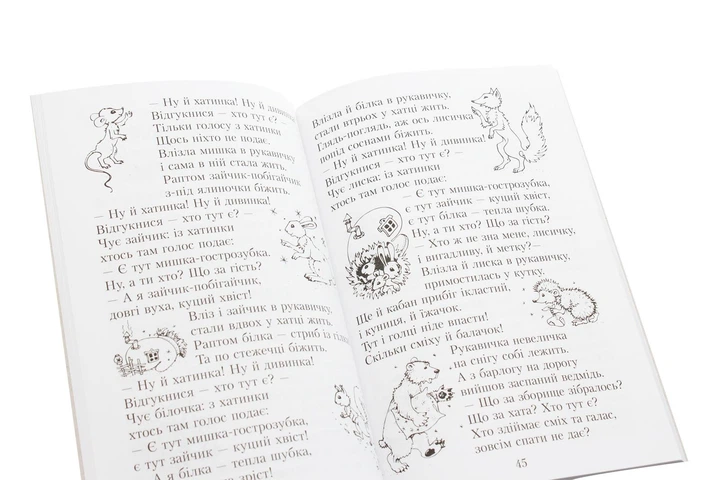 — Ну й хатинка! Ну й дивинка!
Відгукнися — хто тут є?
Тільки голосу з хатинки
Щось ніхто не подає.
Влізла мишка в рукавичку
і сама в ній стала жить.
Раптом зайчик-побігайчик
з-під ялиночки біжить.
— Ну й хатинка! Ну й дивинка!
Відгукнися — хто тут є? —
Чує зайчик: із хатинки
хтось там голос подає:
— Є тут мишка-гострозубка,
Ну, а ти хто? Що за гість?
— А я зайчик-побігайчик,
довгі вуха, куций хвіст!
Вліз і зайчик в рукавичку,
стали вдвох у хатці жить.
Раптом білка — стриб із гілки
Та по стежечці біжить.
— Ну й хатинка! Ну й дивинка!
Відгукнися — хто тут є? —
Чує білочка: з хатинки
хтось там голос подає:
— Є тут мишка-гострозубка,
є тут зайчик — куций хвіст!
А я білка — тепла шубка,
Влізла й білка в рукавичку,
стали втрьох у хатці жить.
Глядь-поглядь, аж ось лисичка
попід соснами біжить.
— Ну й хатинка! Ну й дивинка!
Відгукнися — хто тут є? —
Чує лиска: із хатинки
хтось там голос подає:
— Є тут мишка-гострозубка,
є тут зайчик — куций хвіст,
є тут білка — тепла шубка.
Ну, а ти хто? Що за гість?
— Хто ж не зна мене, лисичку,
і вигадливу, й метку?—
Влізла й лиска в рукавичку,
примостилась у кутку.
Ще й кабан прибіг ікластий,
і куниця, й їжачок.
Тут і голці ніде впасти!
Скільки сміху й балачок!
Рукавичка невеличка
на снігу собі лежить.
А з барлогу на дорогу
вийшов заспаний ведмідь.
— Що за зборище зібралось?
Що за хата? Хто тут є?
Хто здіймає сміх та галас,
зовсім спати не дає?
45